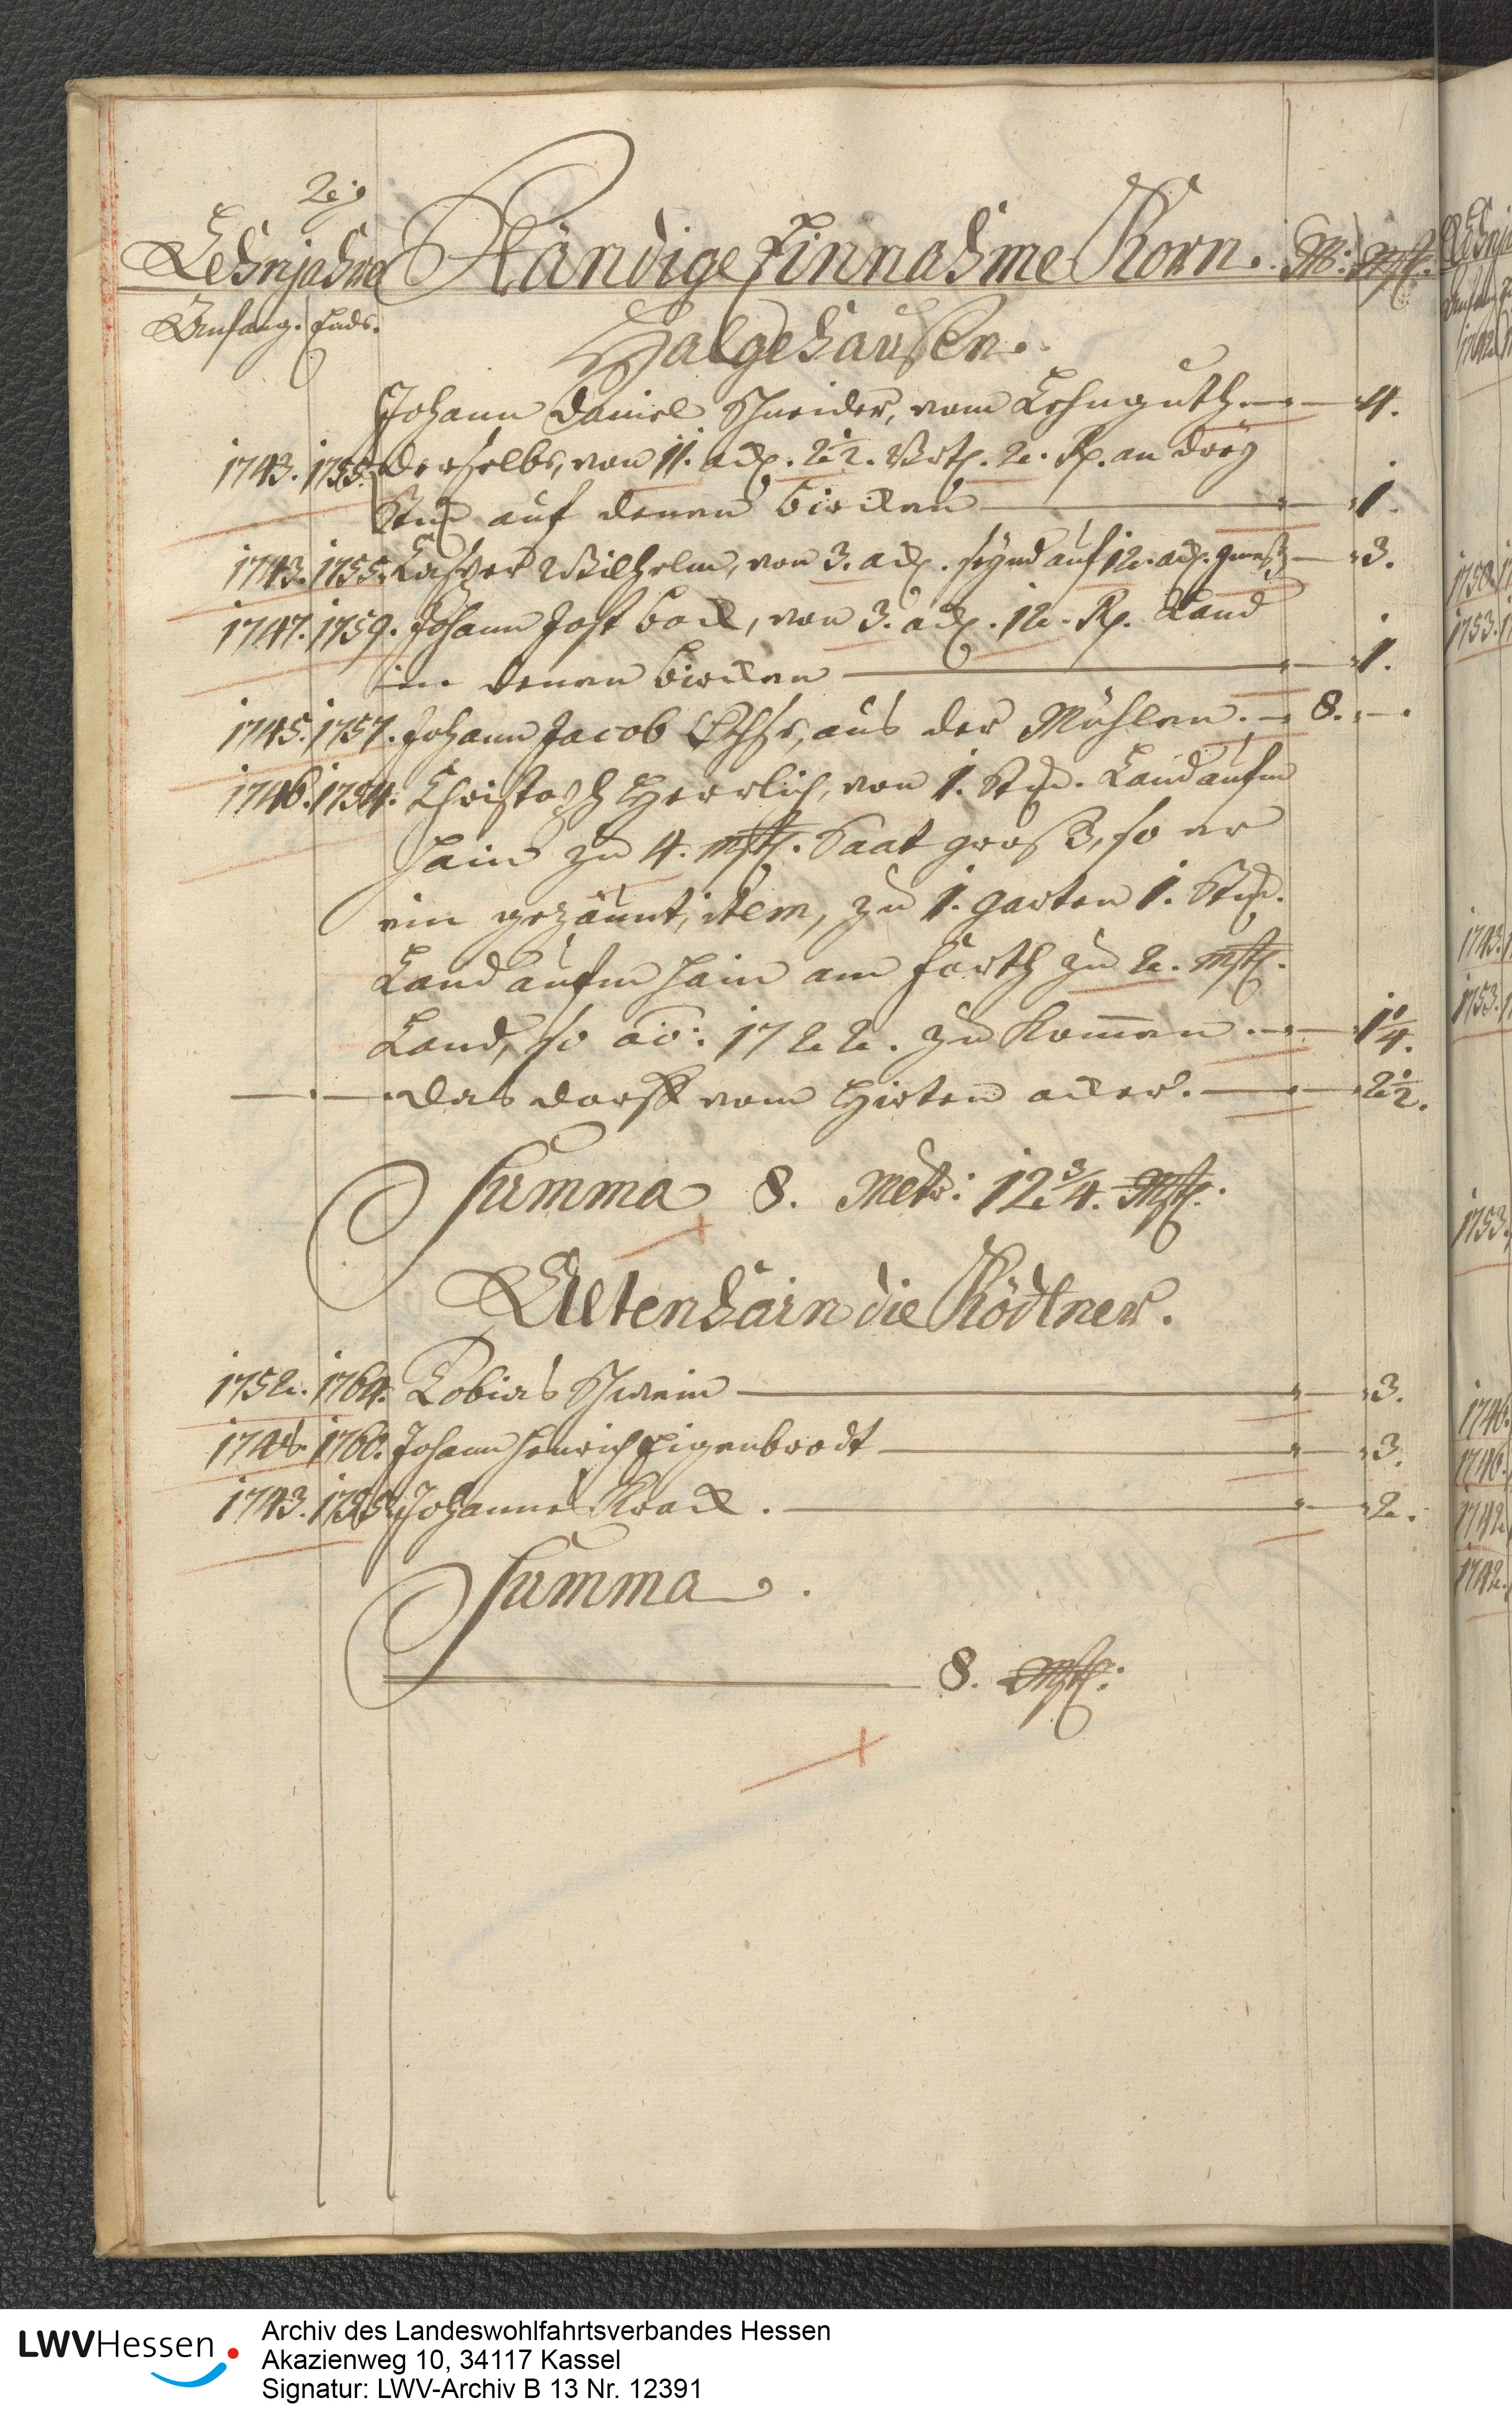 Lehnjahre Ständige Einnahme Korn. M: Mst.
Anfang. Ende.
Halgehausen.
Johann Daniel Schneider, vom Lehnguth 4.
1743. 1755. derselbe, von 11. ack. 2½. Vrtl. 2. R. an drey
Stck auf denen Bircken 1.
1743. 1755. Casper Wilhelm, von 3. ack. seynd auf 12. ack. 3.
1747. 1759. Johann Jost Bock, von 3. ack. 12. R. Land
in denen Bircken 1.
1745. 1757. Johann Jacob aus der Mühlen. 8.
1746. 1754. Christoph Herrlich, von 1. Stck. Land aufm
Hain zu 4. Mst. Saat groß, so er
ein gezäunt, item, zu 1. garten 1. Stck.
Land aufm Hain am fürth zu 2. Mst.
Land, so ao: 1722. zu komen 1¼.
das dorff vom Hirten acker. 2½.
Summa 8. Mttr: 12¾. Mst.
Altenhain die Ködtner.
1752. 1764. Tobias Schwein 3.
1748. 1760. Johann Henrich Eigenbrodt 3.
1743. 1755. Johannes Krack. 2.
Summa.
8. Mst:
LWVHessen
Archiv des Landeswohlfahrtsverbandes Hessen
Akazienweg 10, 34117 Kassel
Signatur: LWV-Archiv B 13 Nr. 12391